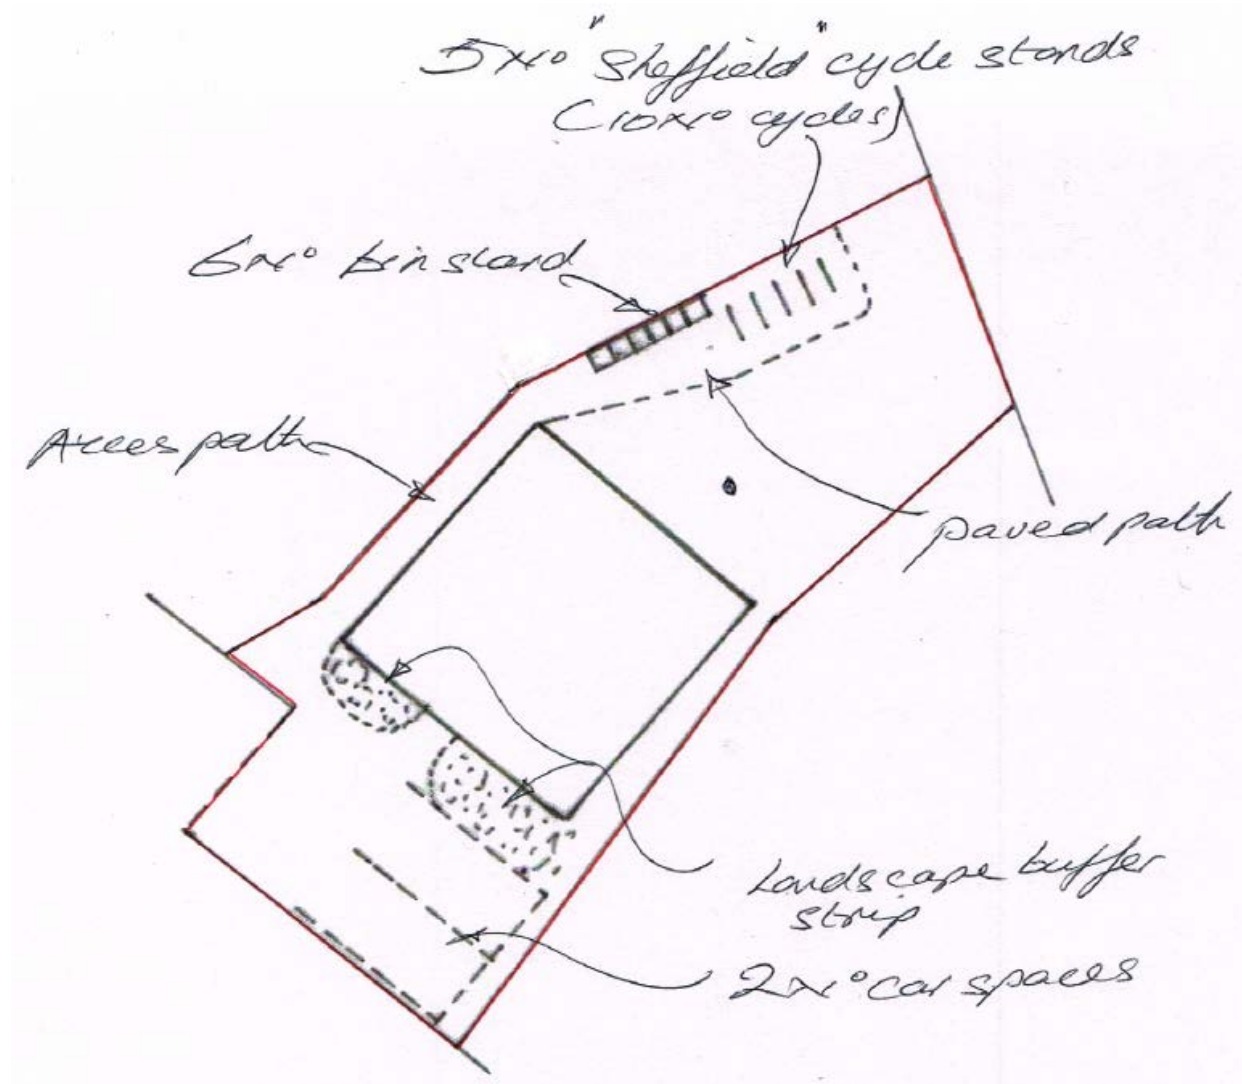 5 No "Sheffield" cycle stands
(10 No cycles)
6 No bin stand
Acces path
paved path
Landscape buffer
strip
2 No car spaces